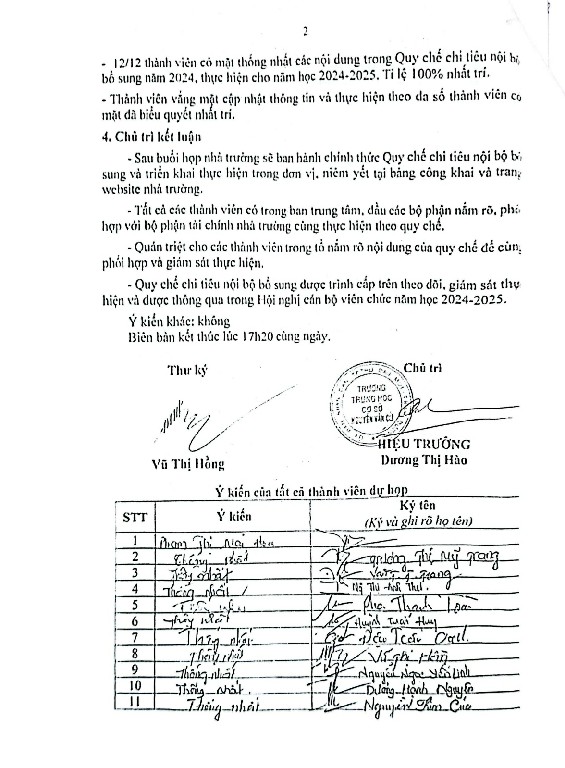 2
- 12/12 thành viên có mặt thống nhất các nội dung trong Quy chế chi tiêu nội
bổ sung năm 2024, thực hiện cho năm học 2024-2025. Tỉ lệ 100% nhất trí.
- Thành viên vắng mặt cập nhật thông tin và thực hiện theo đa số thành viên có
mặt đã biểu quyết nhất trí.
4. Chủ trì kết luận
- Sau buổi họp nhà trường sẽ ban hành chính thức Quy chế chi tiêu nội bộ
sung và triển khai thực hiện trong đơn vị, niêm yết tại bảng công khai và trang
website nhà trường.
- Tất cả các thành viên có trong ban trung tâm, đầu các bộ phận nắm rõ,
hợp với bộ phận tài chính nhà trường cùng thực hiện theo quy chế.
- Quán triệt cho các thành viên trong tổ nắm rõ nội dung của quy chế để
phối hợp và giám sát thực hiện.
- Quy chế chi tiêu nội bộ bổ sung được trình cấp trên theo dõi, giám sát
hiện và được thông qua trong Hội nghị cán bộ viên chức năm học 2024-2025.
Ý kiến khác: không
Biên bản kết thúc lúc 17h20 cùng ngày.
Thư ký Chủ trì
TRƯỜNG
TRUNG HỌC
CƠ SỞ
HIỆU TRƯỞNG
Vũ Thị Hồng Dương Thị Hào
Ý kiến của tất cả thành viên dự họp
STT Ý kiến Ký tên
(Ký và ghi rõ họ tên)
1 Phạm Thị Mai
2 Thống nhất Trương Thị Mỹ Trang
3 Thống nhất Trang
4 Thống nhất
5 Thống nhất Thanh
6 Thống nhất Huỳnh Tuấn Huy
7 Thống nhất
8 Thống nhất Võ Thị Hồng
9 Thống nhất Nguyễn Ngọc Linh
10 Thống nhất. Dương Hạnh Nguyên
11 Thống nhất Nguyễn Cúc